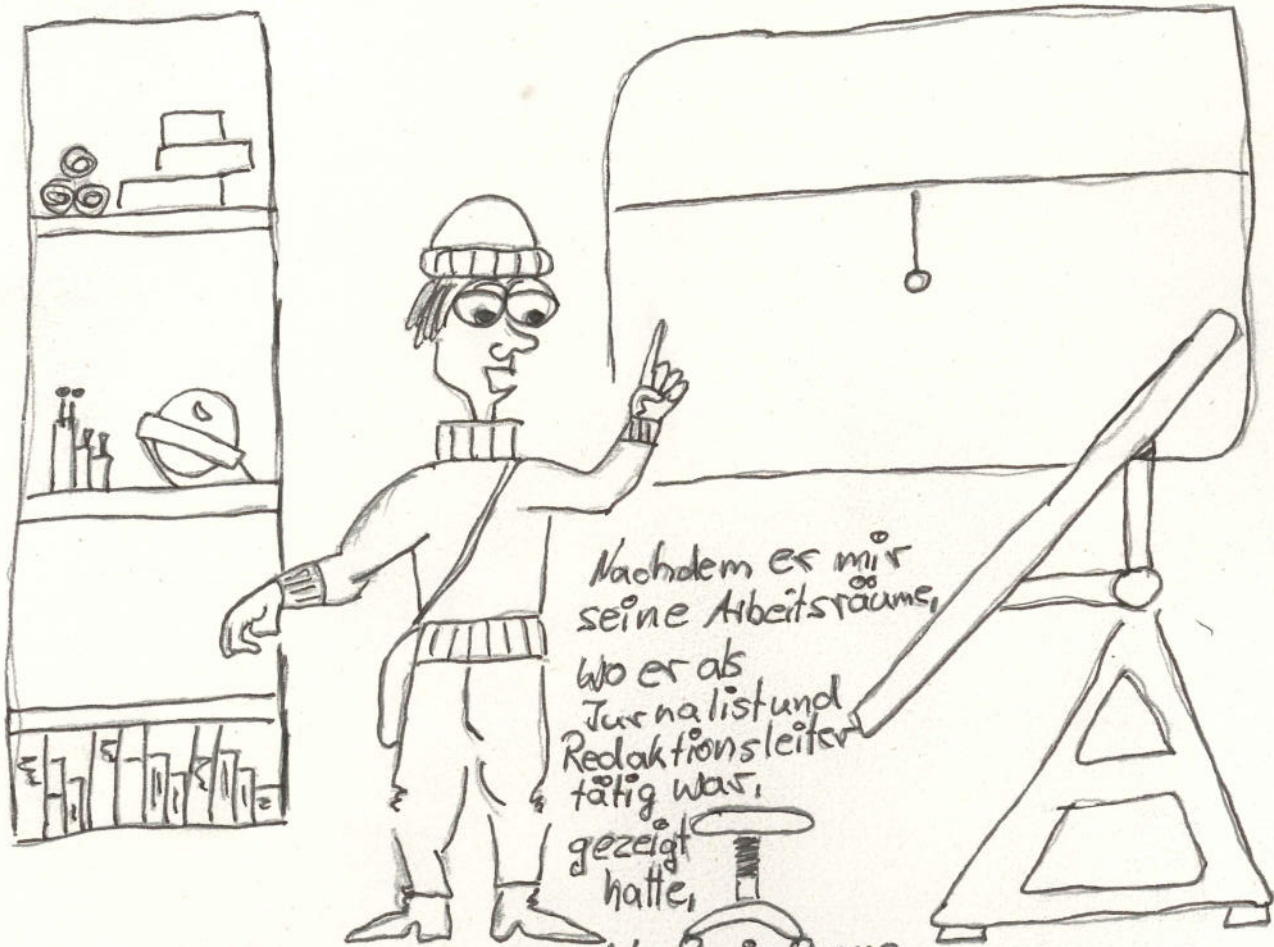 Nachdem er mir
seine Arbeitsräume,
wo er als
Jurnalist und
Redaktionsleiter
tätig war,
gezeigt
hatte,